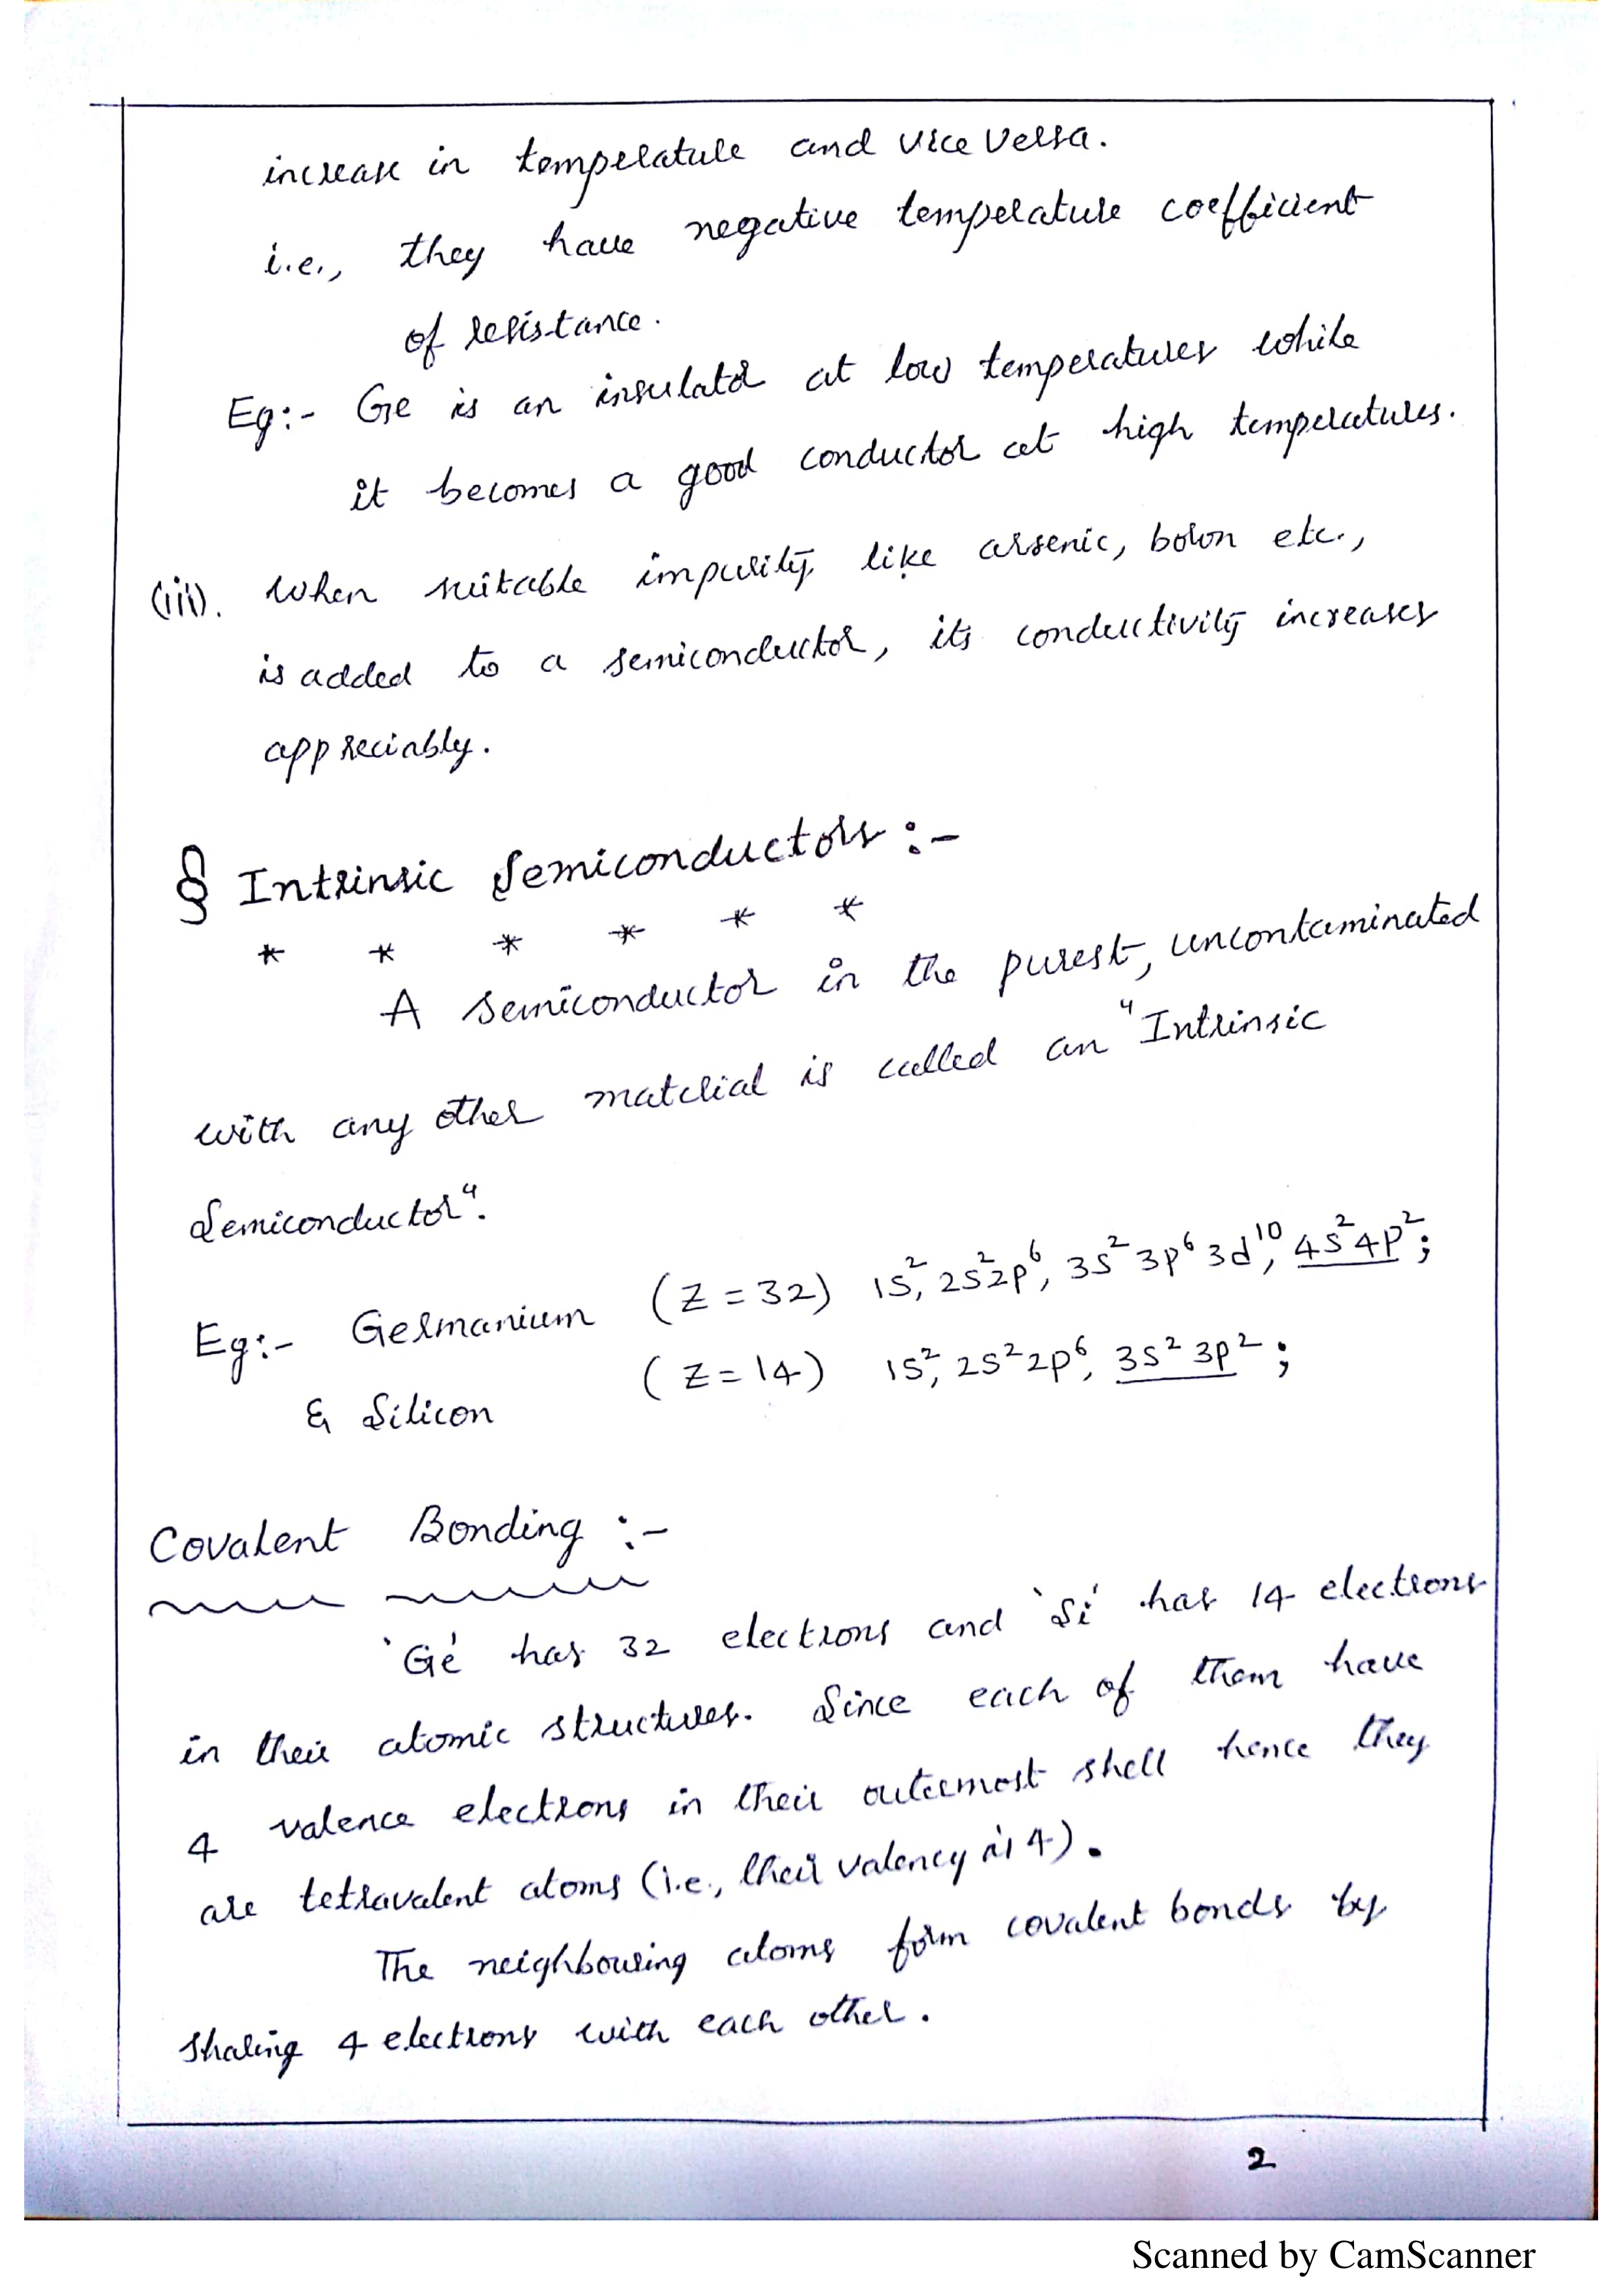 increase in temperature and vice versa.
i.e., they have negative temperature coefficient
of resistance.
Eg:- Ge is an insulator at low temperatures while
it becomes a good conductor at high temperatures.
(iii). When suitable impurity like arsenic, boron etc.,
is added to a semiconductor, its conductivity increases
appreciably.
§ Intrinsic Semiconductors :-
* * * * * *
A semiconductor in the purest, uncontaminated
with any other material is called an "Intrinsic
Semiconductor".
Eg:- Germanium (Z = 32) 1s², 2s²2p⁶, 3s² 3p⁶ 3d¹⁰, 4s² 4p²;
& Silicon (Z = 14) 1s², 2s² 2p⁶, 3s² 3p²;
Covalent Bonding :-
'Ge' has 32 electrons and 'Si' has 14 electrons
in their atomic structures. Since each of them have
4 valence electrons in their outermost shell hence they
are tetravalent atoms (i.e., their valency is 4).
The neighbouring atoms form covalent bonds by
sharing 4 electrons with each other.
2
Scanned by CamScanner